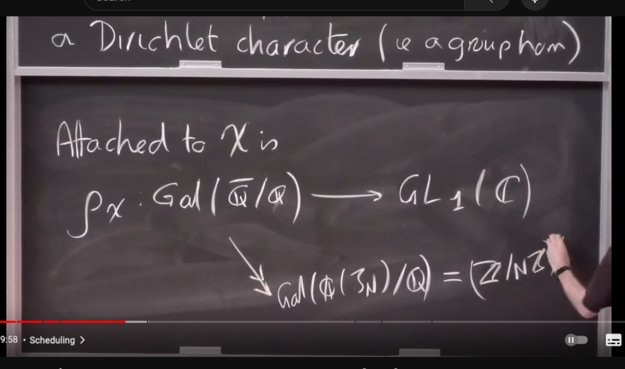 a Dirichlet character (ie a group hom)
Attached to χ is
ρχ : Gal(Q̅/Q) ⟶ GL₁(ℂ)
↘ Gal(Q(ζN)/Q) = (ℤ/Nℤ)
9:58 • Scheduling >